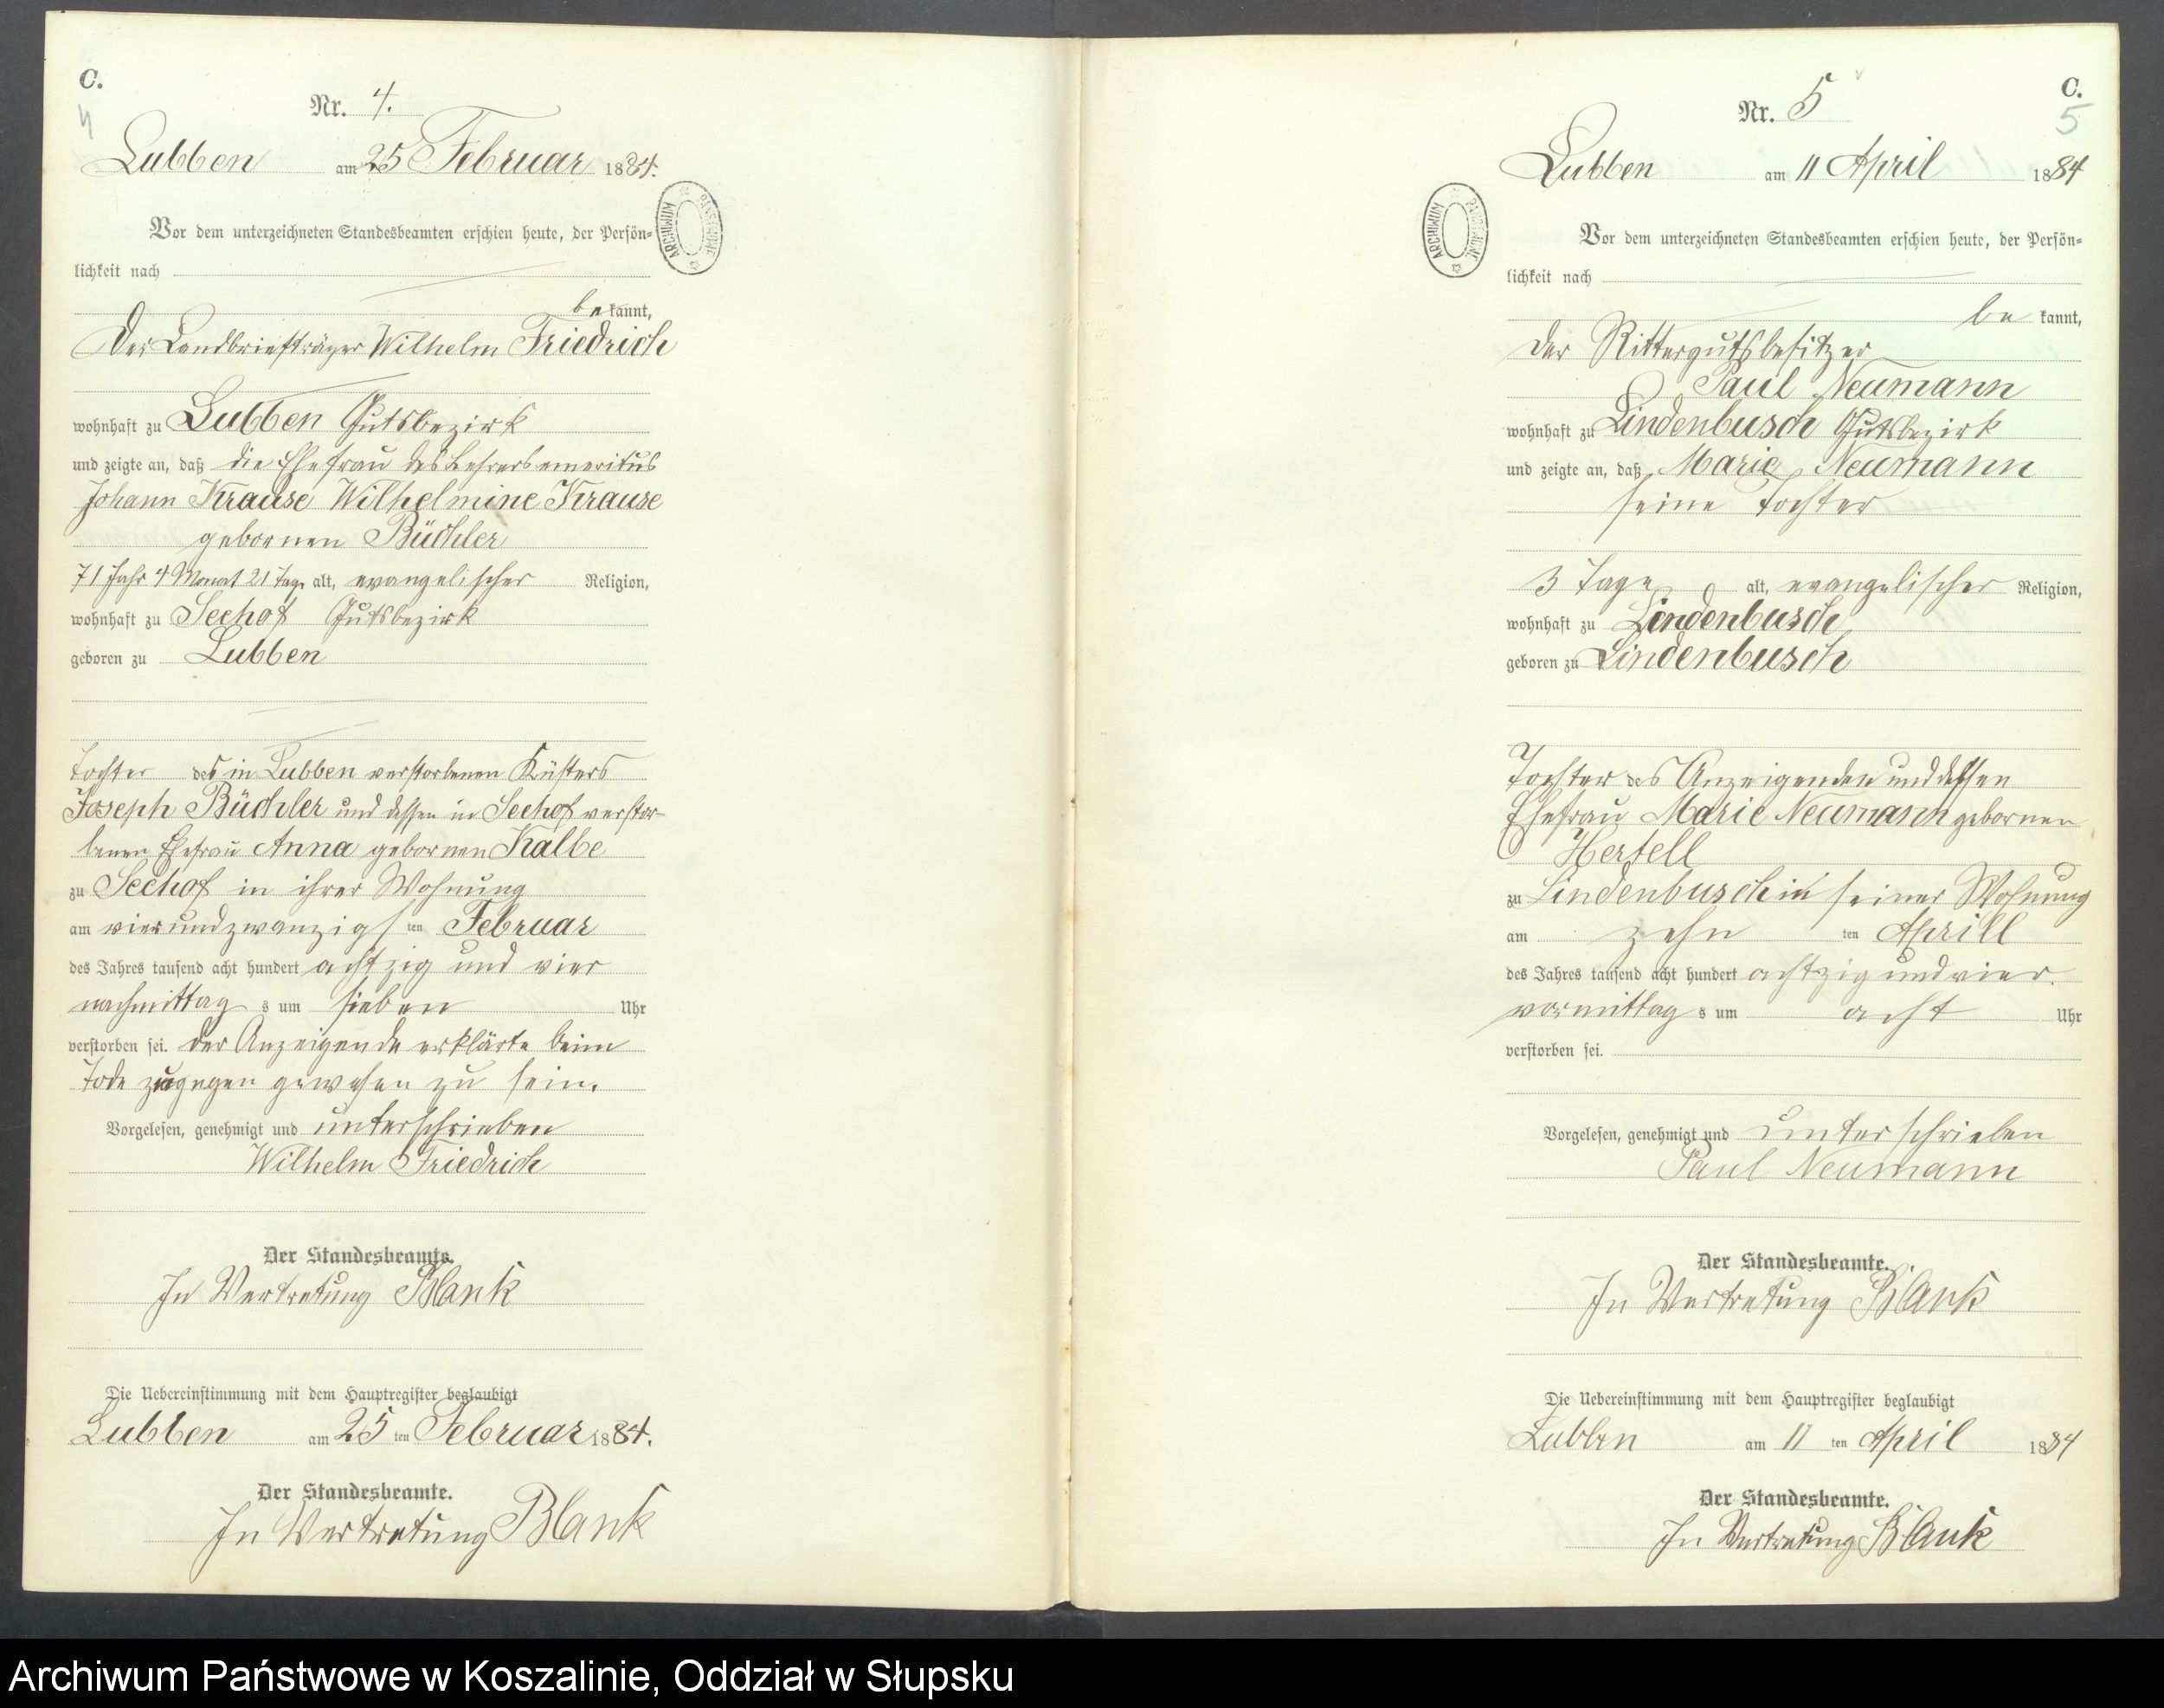 C.
4
Nr. 4.
Lubben am 25 Februar 1884.
Vor dem unterzeichneten Standesbeamten erschien heute, der Persön-
lichkeit nach
be kannt,
Der Landbriefträger Wilhelm Friedrich
wohnhaft zu Lubben Gutsbezirk
und zeigte an, daß die Ehefrau des Lehrers emeritus
Johann Krause Wilhelmine Krause
gebornen Büchler
71 Jahr 4 Monat 21 Tage alt, evangelischer Religion,
wohnhaft zu Seehof Gutsbezirk
geboren zu Lubben
Tochter des in Lubben verstorbenen Küsters
Joseph Büchler und dessen in Seehof verstor-
benen Ehefrau Anna gebornen Kalbe
zu Seehof in ihrer Wohnung
am vierundzwanzigsten Februar
des Jahres tausend acht hundert achtzig und vier
nachmittags um sieben Uhr
verstorben sei. der Anzeigende erklärte beim
Tode zugegen gewesen zu sein.
Vorgelesen, genehmigt und unterschrieben
Wilhelm Friedrich
Der Standesbeamte.
In Vertretung Blank
Die Uebereinstimmung mit dem Hauptregister beglaubigt
Lubben am 25 ten Februar 1884.
Der Standesbeamte.
In Vertretung Blank
C.
5
Nr. 5
Lubben am 11 April 1884
Vor dem unterzeichneten Standesbeamten erschien heute, der Persön-
lichkeit nach
be kannt,
der Rittergutsbesitzer
Paul Neumann
wohnhaft zu Lindenbusch Gutsbezirk
und zeigte an, daß Marie Neumann
seine Tochter
3 Tage alt, evangelischer Religion,
wohnhaft zu Lindenbusch
geboren zu Lindenbusch
Tochter des Anzeigenden und dessen
Ehefrau Marie Neumann gebornen
Hertell
zu Lindenbusch in seiner Wohnung
am zehn ten Aprill
des Jahres tausend acht hundert achtzig und vier.
vormittags um acht Uhr
verstorben sei.
Vorgelesen, genehmigt und unterschrieben
Paul Neumann
Der Standesbeamte.
In Vertretung Blank
Die Uebereinstimmung mit dem Hauptregister beglaubigt
Lubben am 11 ten April 1884
Der Standesbeamte.
In Vertretung Blank
ARCHIWUM PAŃSTWOWE
ARCHIWUM PAŃSTWOWE
Archiwum Państwowe w Koszalinie, Oddział w Słupsku